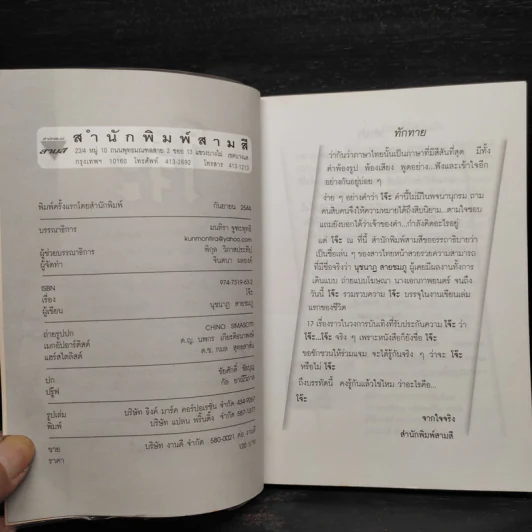 สามสี
สำนักพิมพ์สามสี
23/4 หมู่ 10 ถนนพุทธมณฑลสาย 2 ซอย 13 แขวงบางไผ่ เขตบางแค
กรุงเทพฯ 10160 โทรศัพท์ 413-2692 โทรสาร 413-1213
พิมพ์ครั้งแรกโดยสำนักพิมพ์ กันยายน 2544
บรรณาธิการ มนทิรา จูฑะพุทธิ
kunmontira@yahoo.com
ผู้ช่วยบรรณาธิการ
ผู้จัดทำ จินตนา
ISBN 974-7519-63-2
เรื่อง โจ๊ะ
ผู้เขียน นุชนาฏ สายชมภู
ถ่ายรูปปก CHINO SIMASOTE
เมกอัปอาร์ติสต์ ด.ญ. นพกร
แฮร์สไตลิสต์ ด.ช. กมล
ปก ชัยศักดิ์
ปรู๊ฟ
รูปเล่ม บริษัท ธิงค์ มาร์ค คอร์ปอเรชั่น จำกัด
พิมพ์ บริษัท แปลน พริ้นติ้ง จำกัด
ขาย บริษัท งานดี จำกัด 580-0021 ต่อ งานดี
ราคา 120 บาท
ทักทาย
ว่ากันว่าภาษาไทยนั้นเป็นภาษาที่มีสีสันที่สุด มีทั้ง
คำพ้องรูป พ้องเสียง พูดอย่าง...ฟังและเข้าใจอีก
อย่างกันอยู่บ่อย ๆ
ง่าย ๆ อย่างคำว่า โจ๊ะ คำนี้ไม่มีในพจนานุกรม ถาม
คนสิบคนจึงให้ความหมายได้ถึงสิบนิยาม...ตามใจชอบ
แถมยังบอกได้ว่าเจ้าของคำ...กำลังคิดอะไรอยู่
แต่ โจ๊ะ ณ ที่นี้ สำนักพิมพ์สามสีขออรรถาธิบายว่า
เป็นชื่อเล่น ๆ ของสาวไทยหน้าสวยรวยความสามารถ
ที่มีชื่อจริงว่า นุชนาฏ สายชมภู ผู้เคยมีผลงานทั้งการ
เดินแบบ ถ่ายแบบโฆษณา นางเอกภาพยนตร์ จนถึง
วันนี้ โจ๊ะ รวมรวบความ โจ๊ะ บรรจุในงานเขียนเล่ม
แรกของชีวิต
17 เรื่องราวในวงการบันเทิงที่รับประกันความ โจ๊ะ ว่า
โจ๊ะ...โจ๊ะ จริง ๆ เพราะหนังสือก็ยังชื่อ โจ๊ะ
ขอซักชวนให้ร่วมแจม จะได้รู้กันจริง ๆ ว่าจะ โจ๊ะ
หรือไม่ โจ๊ะ
ถึงบรรทัดนี้ คงรู้กันแล้วใช่ไหม ว่าอะไรคือ...
โจ๊ะ
จากใจจริง
สำนักพิมพ์สามสี